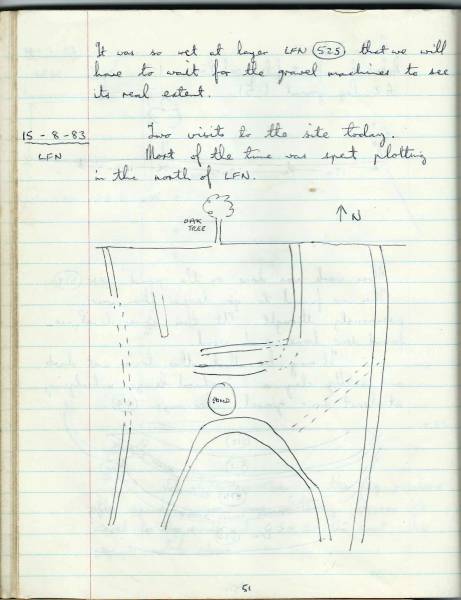 It was so wet at layer LFN (525) that we will
have to wait for the gravel machines to see
its real extent.
15-8-83 Two visits to the site today.
LFN Most of the time was spet plotting
in the north of LFN.
OAK
TREE
↑N
POND
51